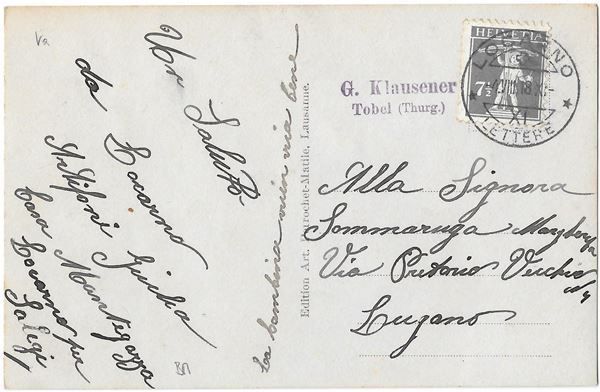 Va
Un Saluto
da Locarno
Antifoni Giulia
Casa Mantegazza
Locarno per
La bambina via bene
Edition Art. Perrochet-Matile, Lausanne.
G. Klausener
Tobel (Thurg.)
HELVETIA
7½
LOCARNO
XI
LETTERE
Alla Signora
Sommaruga
Via Pretorio Vecchio
Lugano